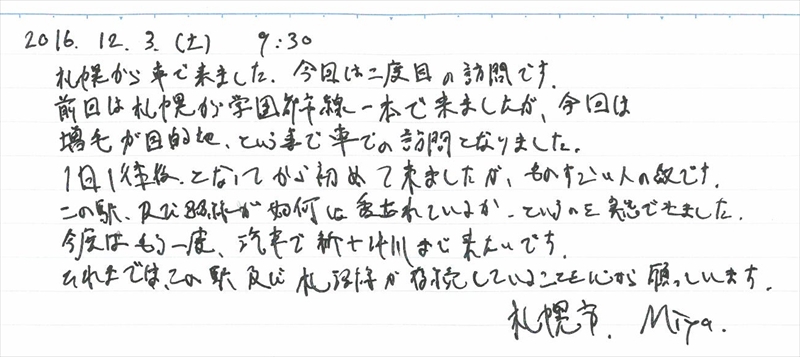 2016. 12. 3. (土)　9:30
札幌から車で来ました。今回は二度目の訪問です。
前回は札幌から学園都市線一本で来ましたが、今回は
増毛が目的地、という事で車での訪問となりました。
1日1往復となってから初めて来ましたが、ものすごい人の数です。
この駅、及び路線が如何に愛されているか、というのを実感できました。
今度はもう一度、汽車で新十津川まで来たいです。
それまでは、この駅及び札沼線が存続していることを心から願っています。
札幌市. Miya.